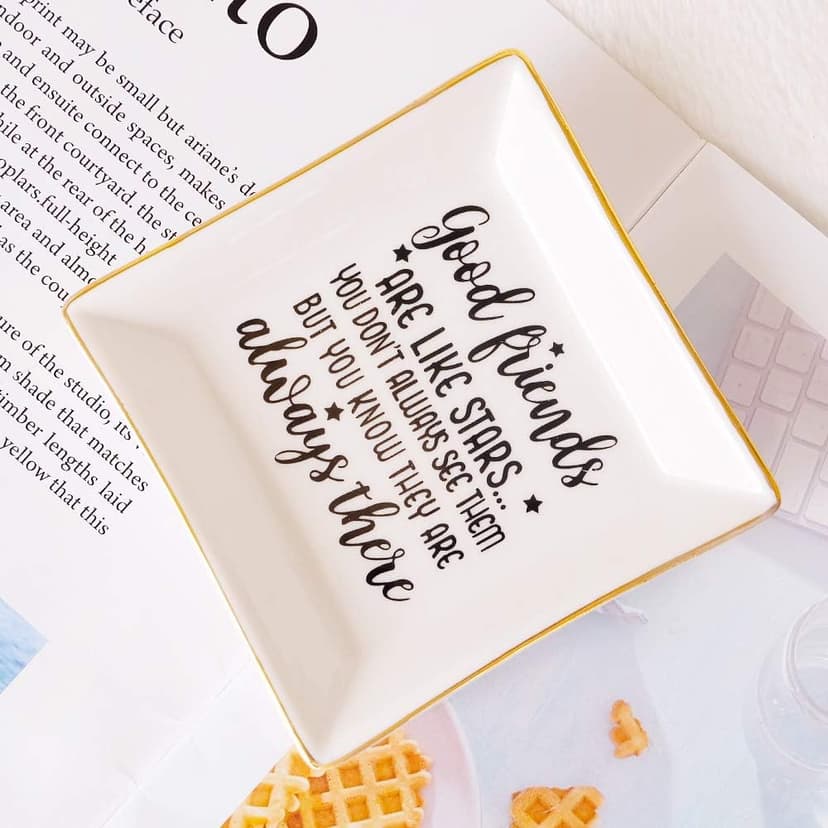 no
eface
print may be small but ariane's
ndoor and outside spaces, makes
and ensuite connect to the ce
the front courtyard, the st
hile at the rear of the h
oplars.full-height
area and almo
as the cou
ure of the studio, its
m shade that matches
timber lengths laid
yellow that this
Good friends
ARE LIKE STARS...
YOU DON'T ALWAYS SEE THEM
BUT YOU KNOW THEY ARE
always there